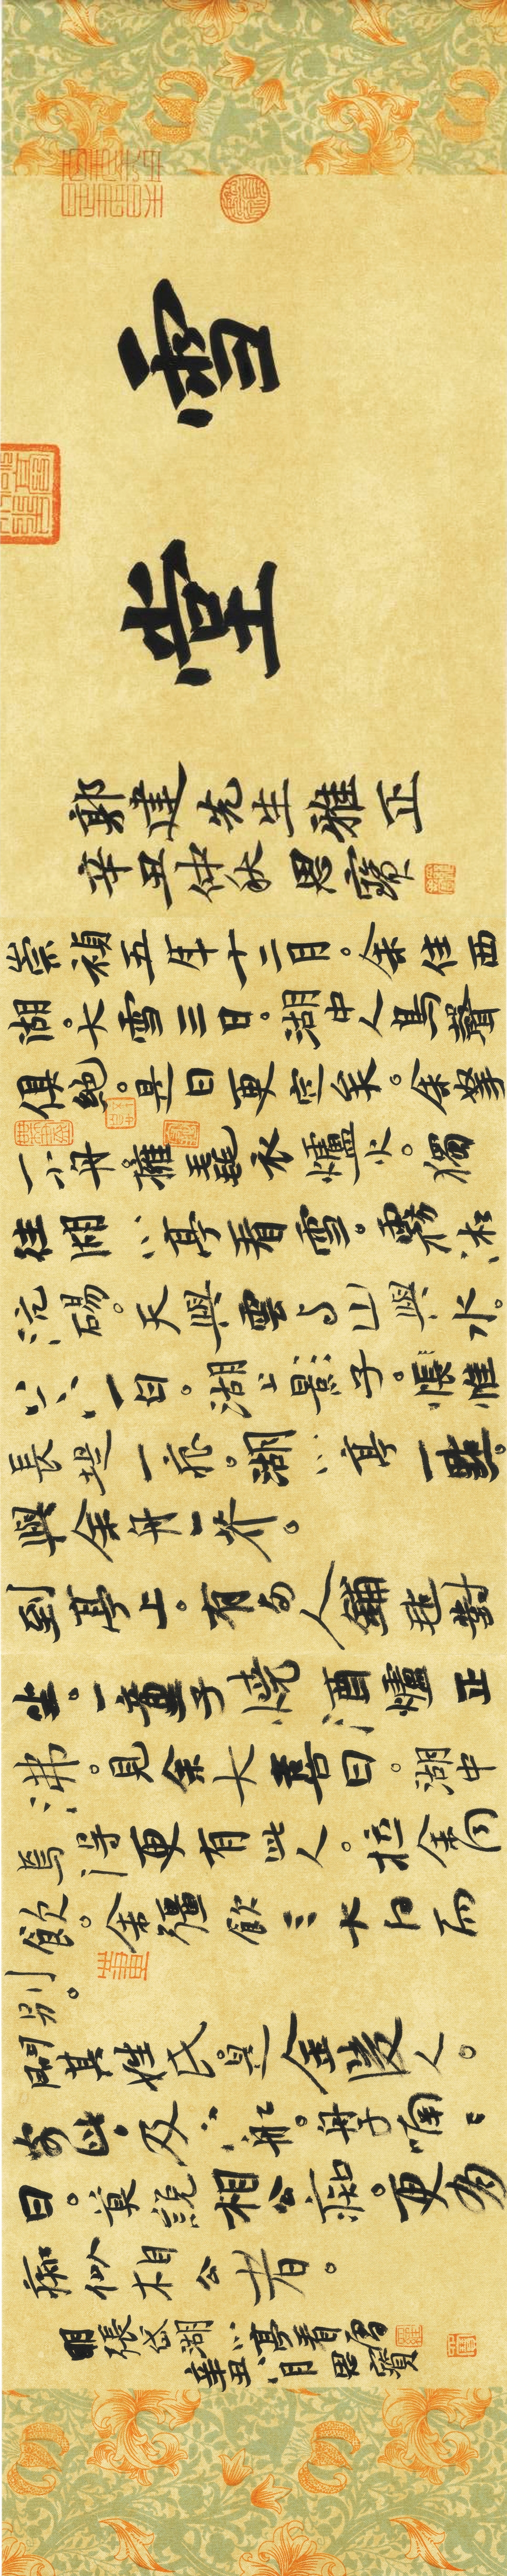 雪堂
郭建先生雅正
辛丑仲秋 思寶
崇禎五年十二月。余住西
湖。大雪三日。湖中人鳥聲
俱絕。是日更定矣。余拏
一小舟。擁毳衣爐火。獨
往湖心亭看雪。霧凇
沆碭。天與雲与山與水。
上下一白。湖上影子。惟
長堤一痕。湖心亭一點。
與余舟一芥。
到亭上。有兩人鋪氈對
坐。一童子燒酒爐正
沸。見余大喜曰。湖中
焉得更有此人。拉余同
飲。余彊飲三大白而
別。
問其姓氏。是金陵人。
客此。及下船。舟子喃喃
曰。莫說相公痴。更有
痴似相公者。
明張岱湖心亭看雪
辛丑 月 思寶